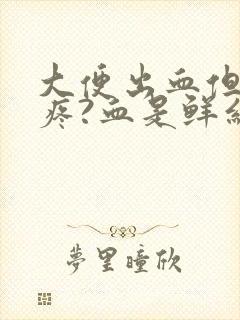 大便出血但
疼?血是鲜
夢里瞳欣